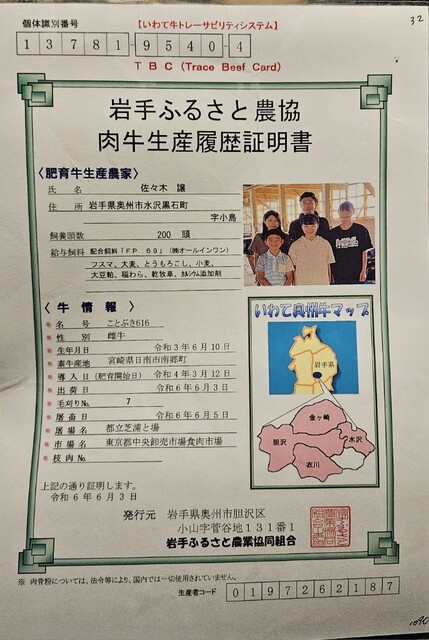 32
個体識別番号
【いわて牛トレーサビリティシステム】
13781-9540-4
TBC (Trace Beef Card)
岩手ふるさと農協
肉牛生産履歴証明書
〈肥育牛生産農家〉
氏名 佐々木 譲
住所 岩手県奥州市水沢黒石町
字小島
飼養頭数 200 頭
給与飼料 配合飼料「FP 69」(㈱オールインワン)
フスマ、大麦、とうもろこし、小麦、
大豆粕、稲わら、乾牧草、カルシウム添加剤
〈牛情報〉
名号 ことぶき616
性別 雌牛
生年月日 令和3年6月10日
素牛産地 宮崎県日南市南郷町
導入日(肥育開始日) 令和4年3月12日
出荷日 令和6年6月3日
毛刈りNo. 7
屠畜日 令和6年6月5日
屠場名 都立芝浦と場
市場名 東京都中央卸売市場食肉市場
枝肉No.
いわて奥州牛マップ
岩手県
金ヶ崎
胆沢
水沢
衣川
上記の通り証明します。
令和6年6月3日
発行元 岩手県奥州市胆沢区
小山字菅谷地131番1
岩手ふるさと農業協同組合
※ 肉骨粉については、法令等により、国内では一切使用されていません。
生産者コード 0197262187